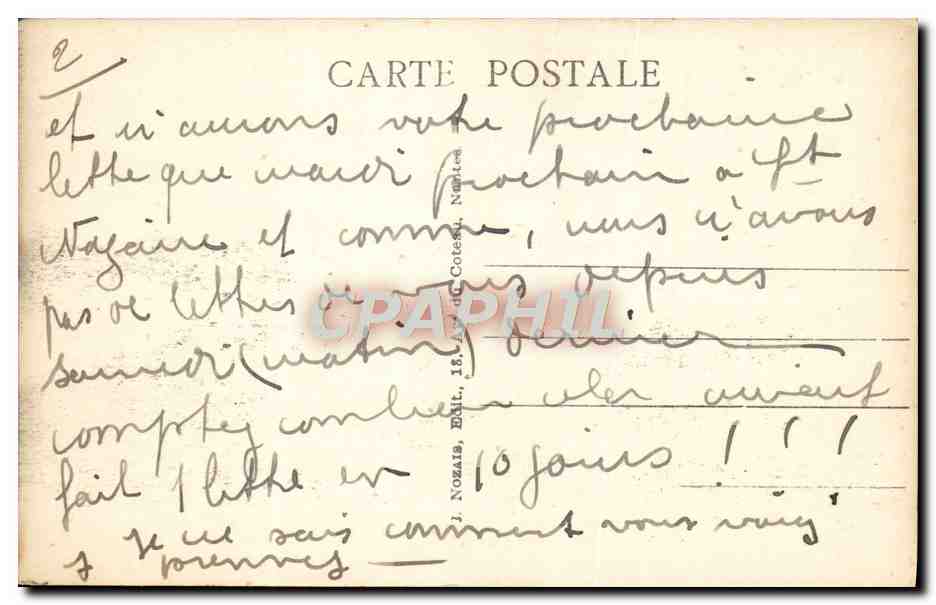 2
CARTE POSTALE
et n'aurons votre prochaine
lettre que mardi prochain a St
Nazaire et comme, nous n'avons
pas de lettres de vous depuis
samedi (matin) dernier
comptez combien cela aurait
fait 1 lettre en 10 jours ! ! !
je ne sais comment vous vous
y prennez —
J. NOZAIS, Edit., 15, Av. du Coteau, Nantes
CPAPHIL